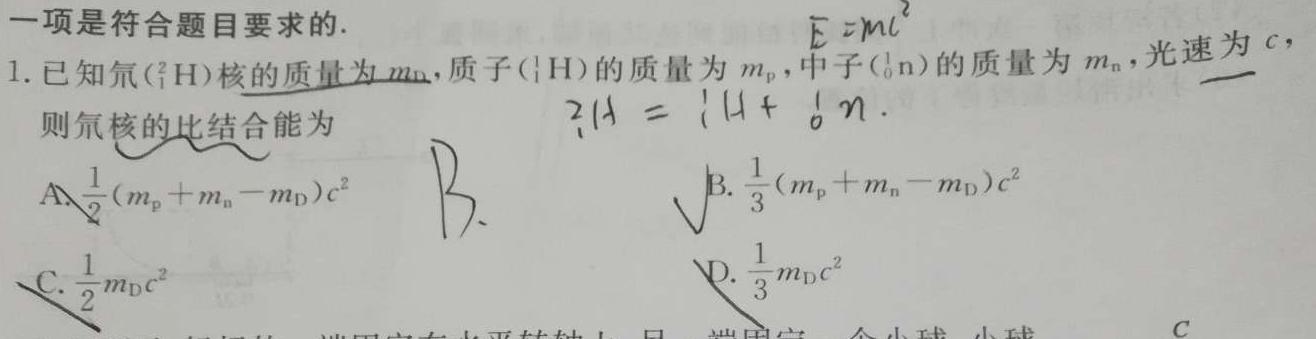 一项是符合题目要求的.
E=mc²
1. 已知氘(²₁H)核的质量为 m_D,质子(¹₁H)的质量为 m_p,中子(¹₀n)的质量为 m_n,光速为 c,
则氘核的比结合能为
²₁H = ¹₁H + ¹₀n.
A. \frac{1}{2}(m_p+m_n-m_D)c²
B.
B. \frac{1}{3}(m_p+m_n-m_D)c²
C. \frac{1}{2}m_Dc²
D. \frac{1}{3}m_Dc²
C